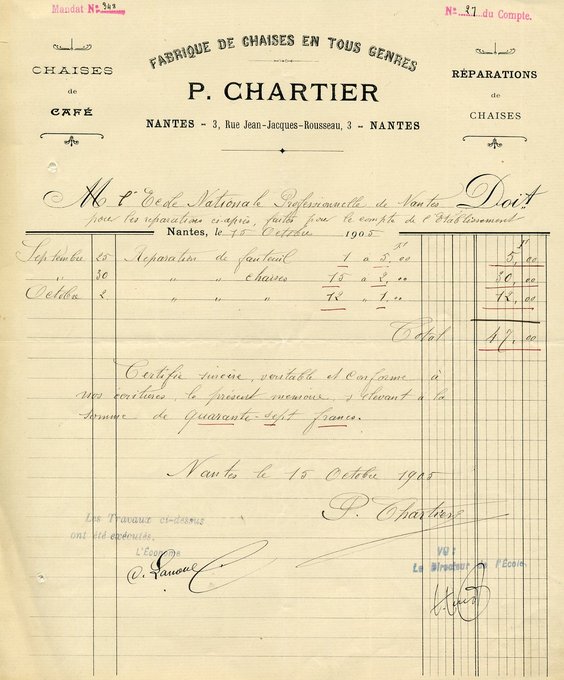 Mandat No 348
No 27 du Compte.
FABRIQUE DE CHAISES EN TOUS GENRES
CHAISES
de
CAFÉ
P. CHARTIER
RÉPARATIONS
de
CHAISES
NANTES – 3, Rue Jean-Jacques-Rousseau, 3 – NANTES
M l'Ecole Nationale Professionnelle de Nantes Doit
pour les réparations ci-après, faites pour le compte de l'Etablissement
Nantes, le 15 Octobre 1905
Septembre 25 Réparation de fauteuil 1 à 5,00 5,00
" 30 " " chaises 15 à 2,00 30,00
Octobre 2 " " " 12 " 1,00 12,00
Total 47,00
Certifié sincère, véritable et conforme à
nos écritures, le présent mémoire, s'élevant à la
somme de quarante-sept francs.
Nantes le 15 Octobre 1905
P. Chartier
Les Travaux ci-dessus
ont été exécutés.
L'Économe
VU:
Le Directeur de l'École